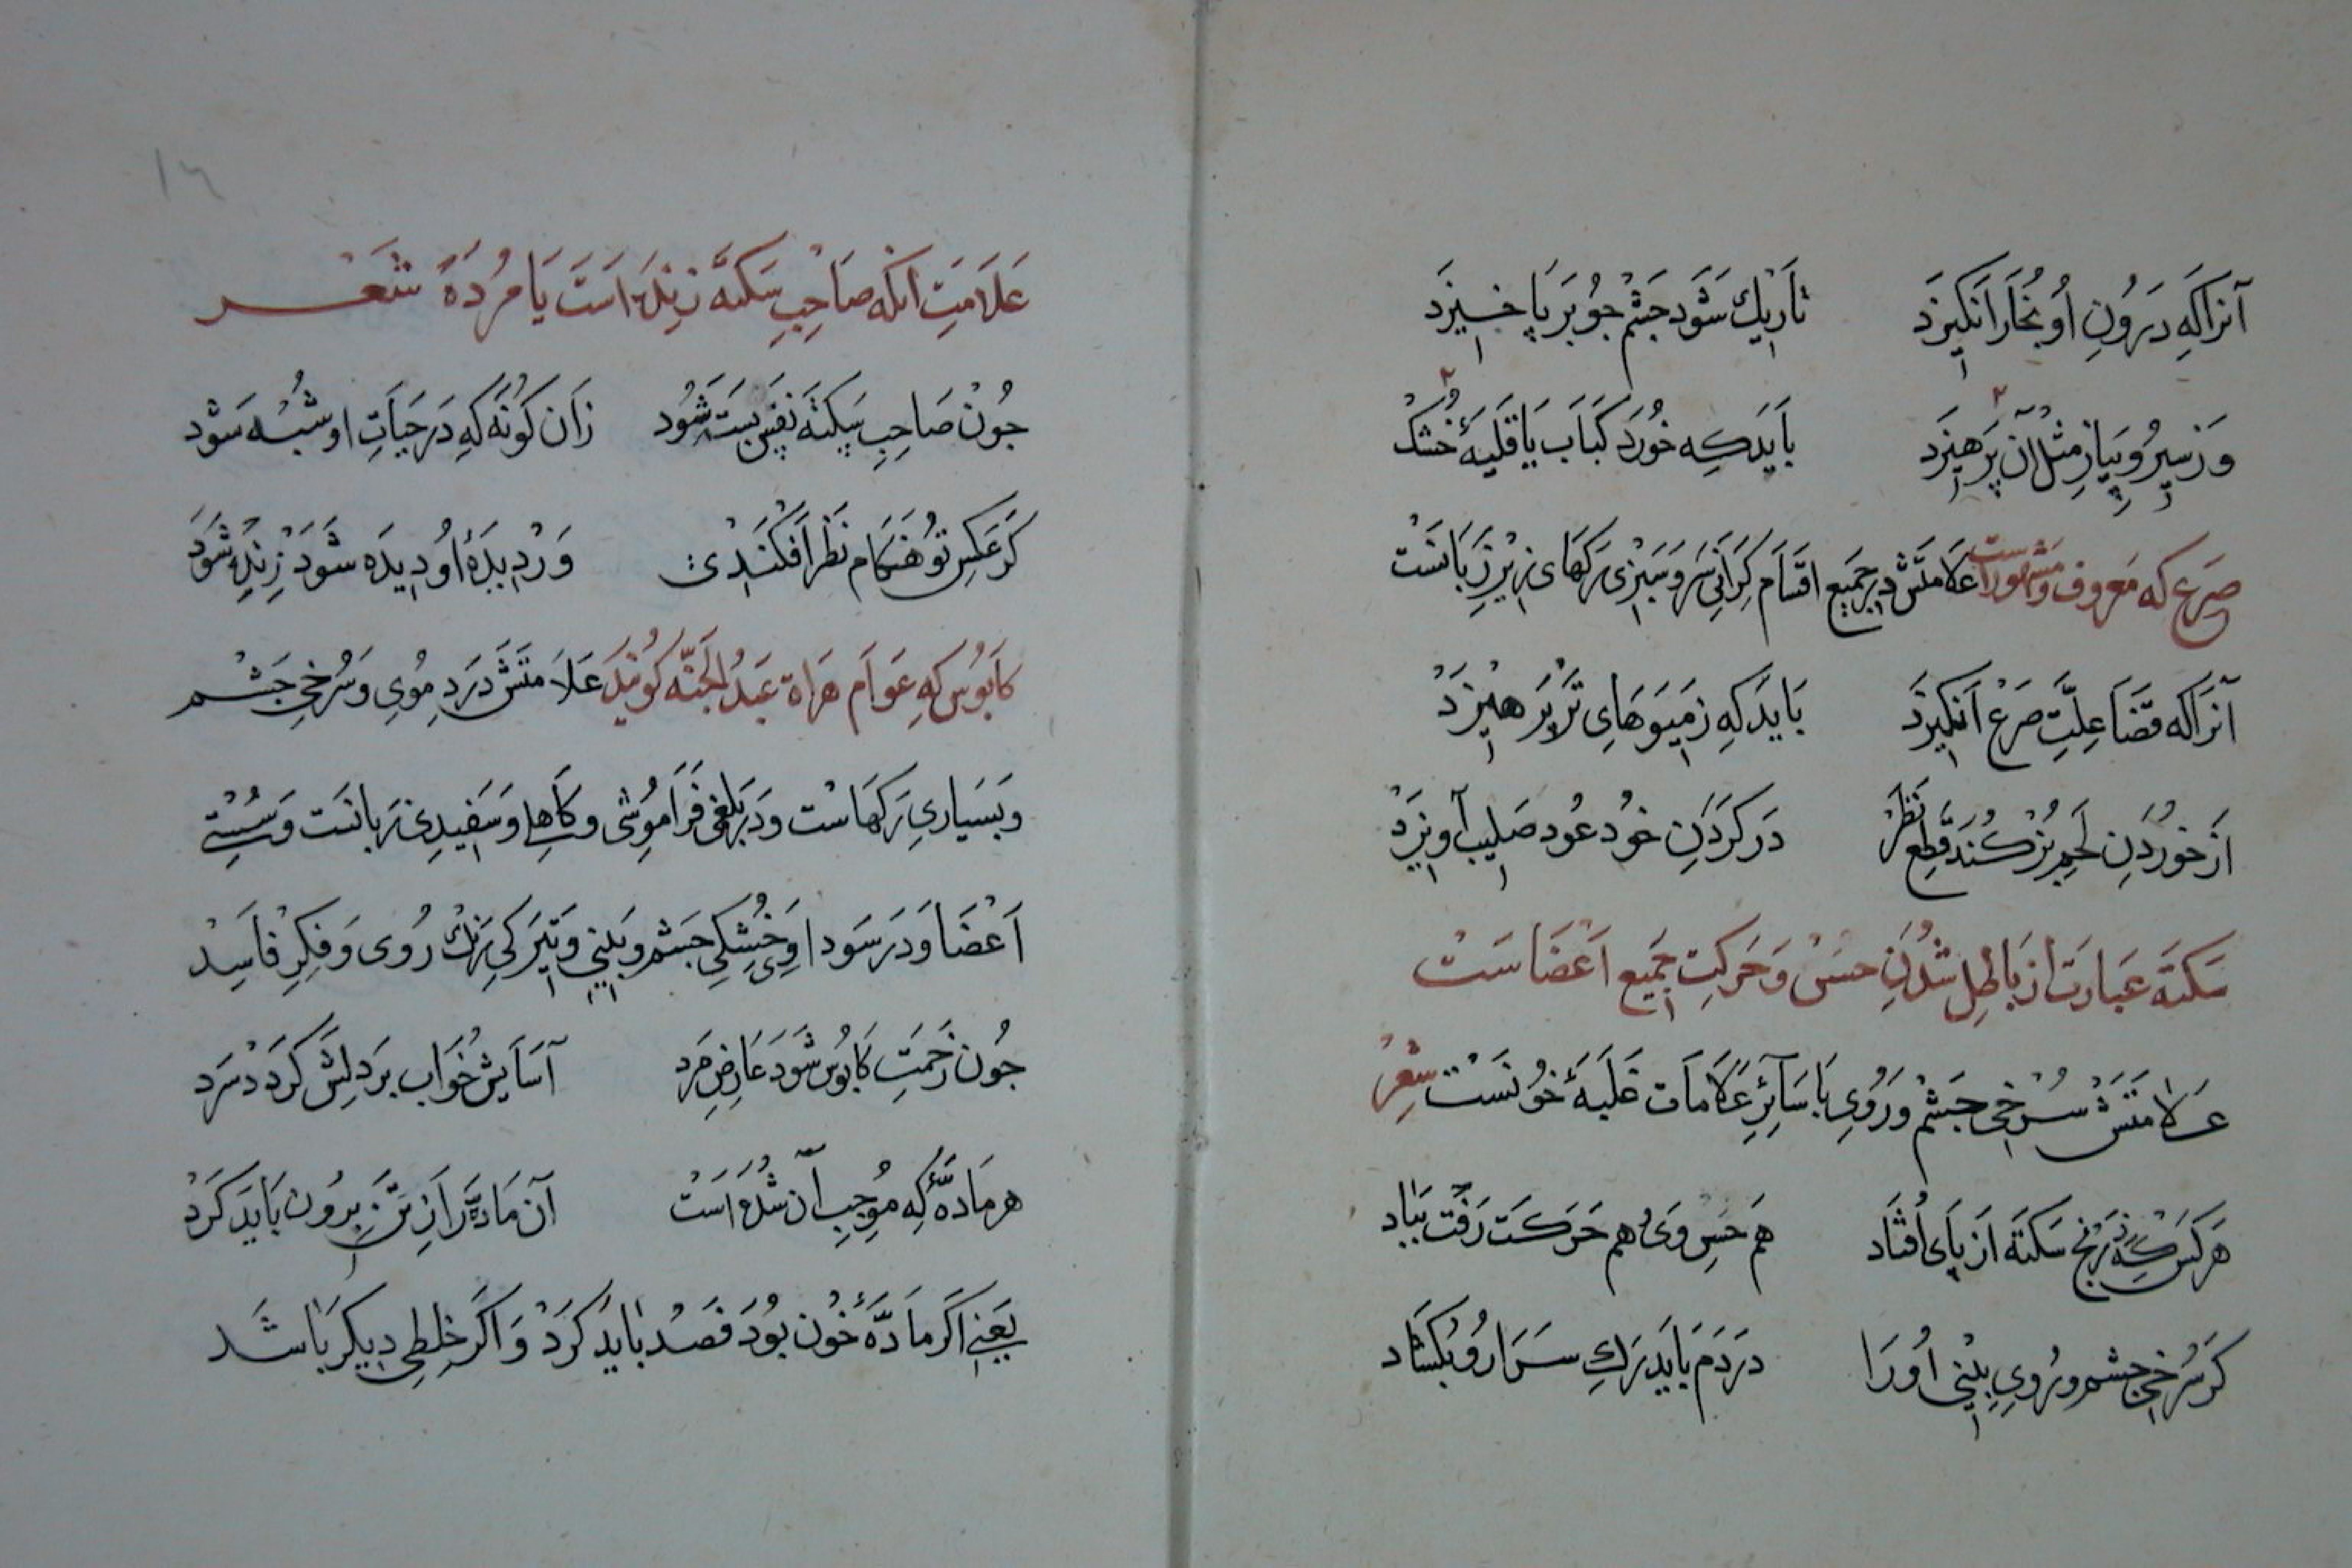 آنرا که درون او بخار انکیزد تاریک شود جشم جو بر پا خیزد
وز سیر و پیاز مثل آن پرهیزد باید که خورد کباب یا قلیهٔ خشک
صرع که معروف و مشهور است علامتش در جمیع اقسام کرانی سر و سبزی رکهای زیر زبانست
آنرا که قضا علت صرع انکیزد باید که ز میوهای تر پرهیزد
از خوردن لحم بز کند قطع نظر در کردن خود عود صلیب آویزد
سکته عبارت از باطل شدن حس و حرکت جمیع اعضاست
علامتش سرخی جشم و روی با سائر علامات غلبهٔ خونست شعر
هر کس که ز رنج سکته از پای افتاد هم حس وی و هم حرکت رفت بباد
کر سرخی جشم و روی بینی او را در دم باید رک سرارو بکشاد
۱۶
علامت انکه صاحب سکته زنده است یا مرده شعر
جون صاحب سکته نفس بست شود زان کونه که در حیات او شبه شود
کر عکس تو هنکام نظر افکندی در دیدهٔ او دیده شود زنده شود
کابوس که عوام هراة عبد الجنه کویند علامتش درد موی و سرخی جشم
و بسیاری رکهاست و در بلغمی فراموشی و کاهلی و سفیدی زبانست و سستی
اعضا و در سوداوی خشکی جشم و بینی و تیرکی رنک روی و فکر فاسد
جون زحمت کابوس شود عارض مرد آسایش خواب بر دلش کردد سرد
هر مادهٔ که موجب آن شده است آن ماده را از تن برون باید کرد
یعنی اکر مادهٔ خون بود فصد باید کرد و اکر خلطی دیکر باشد